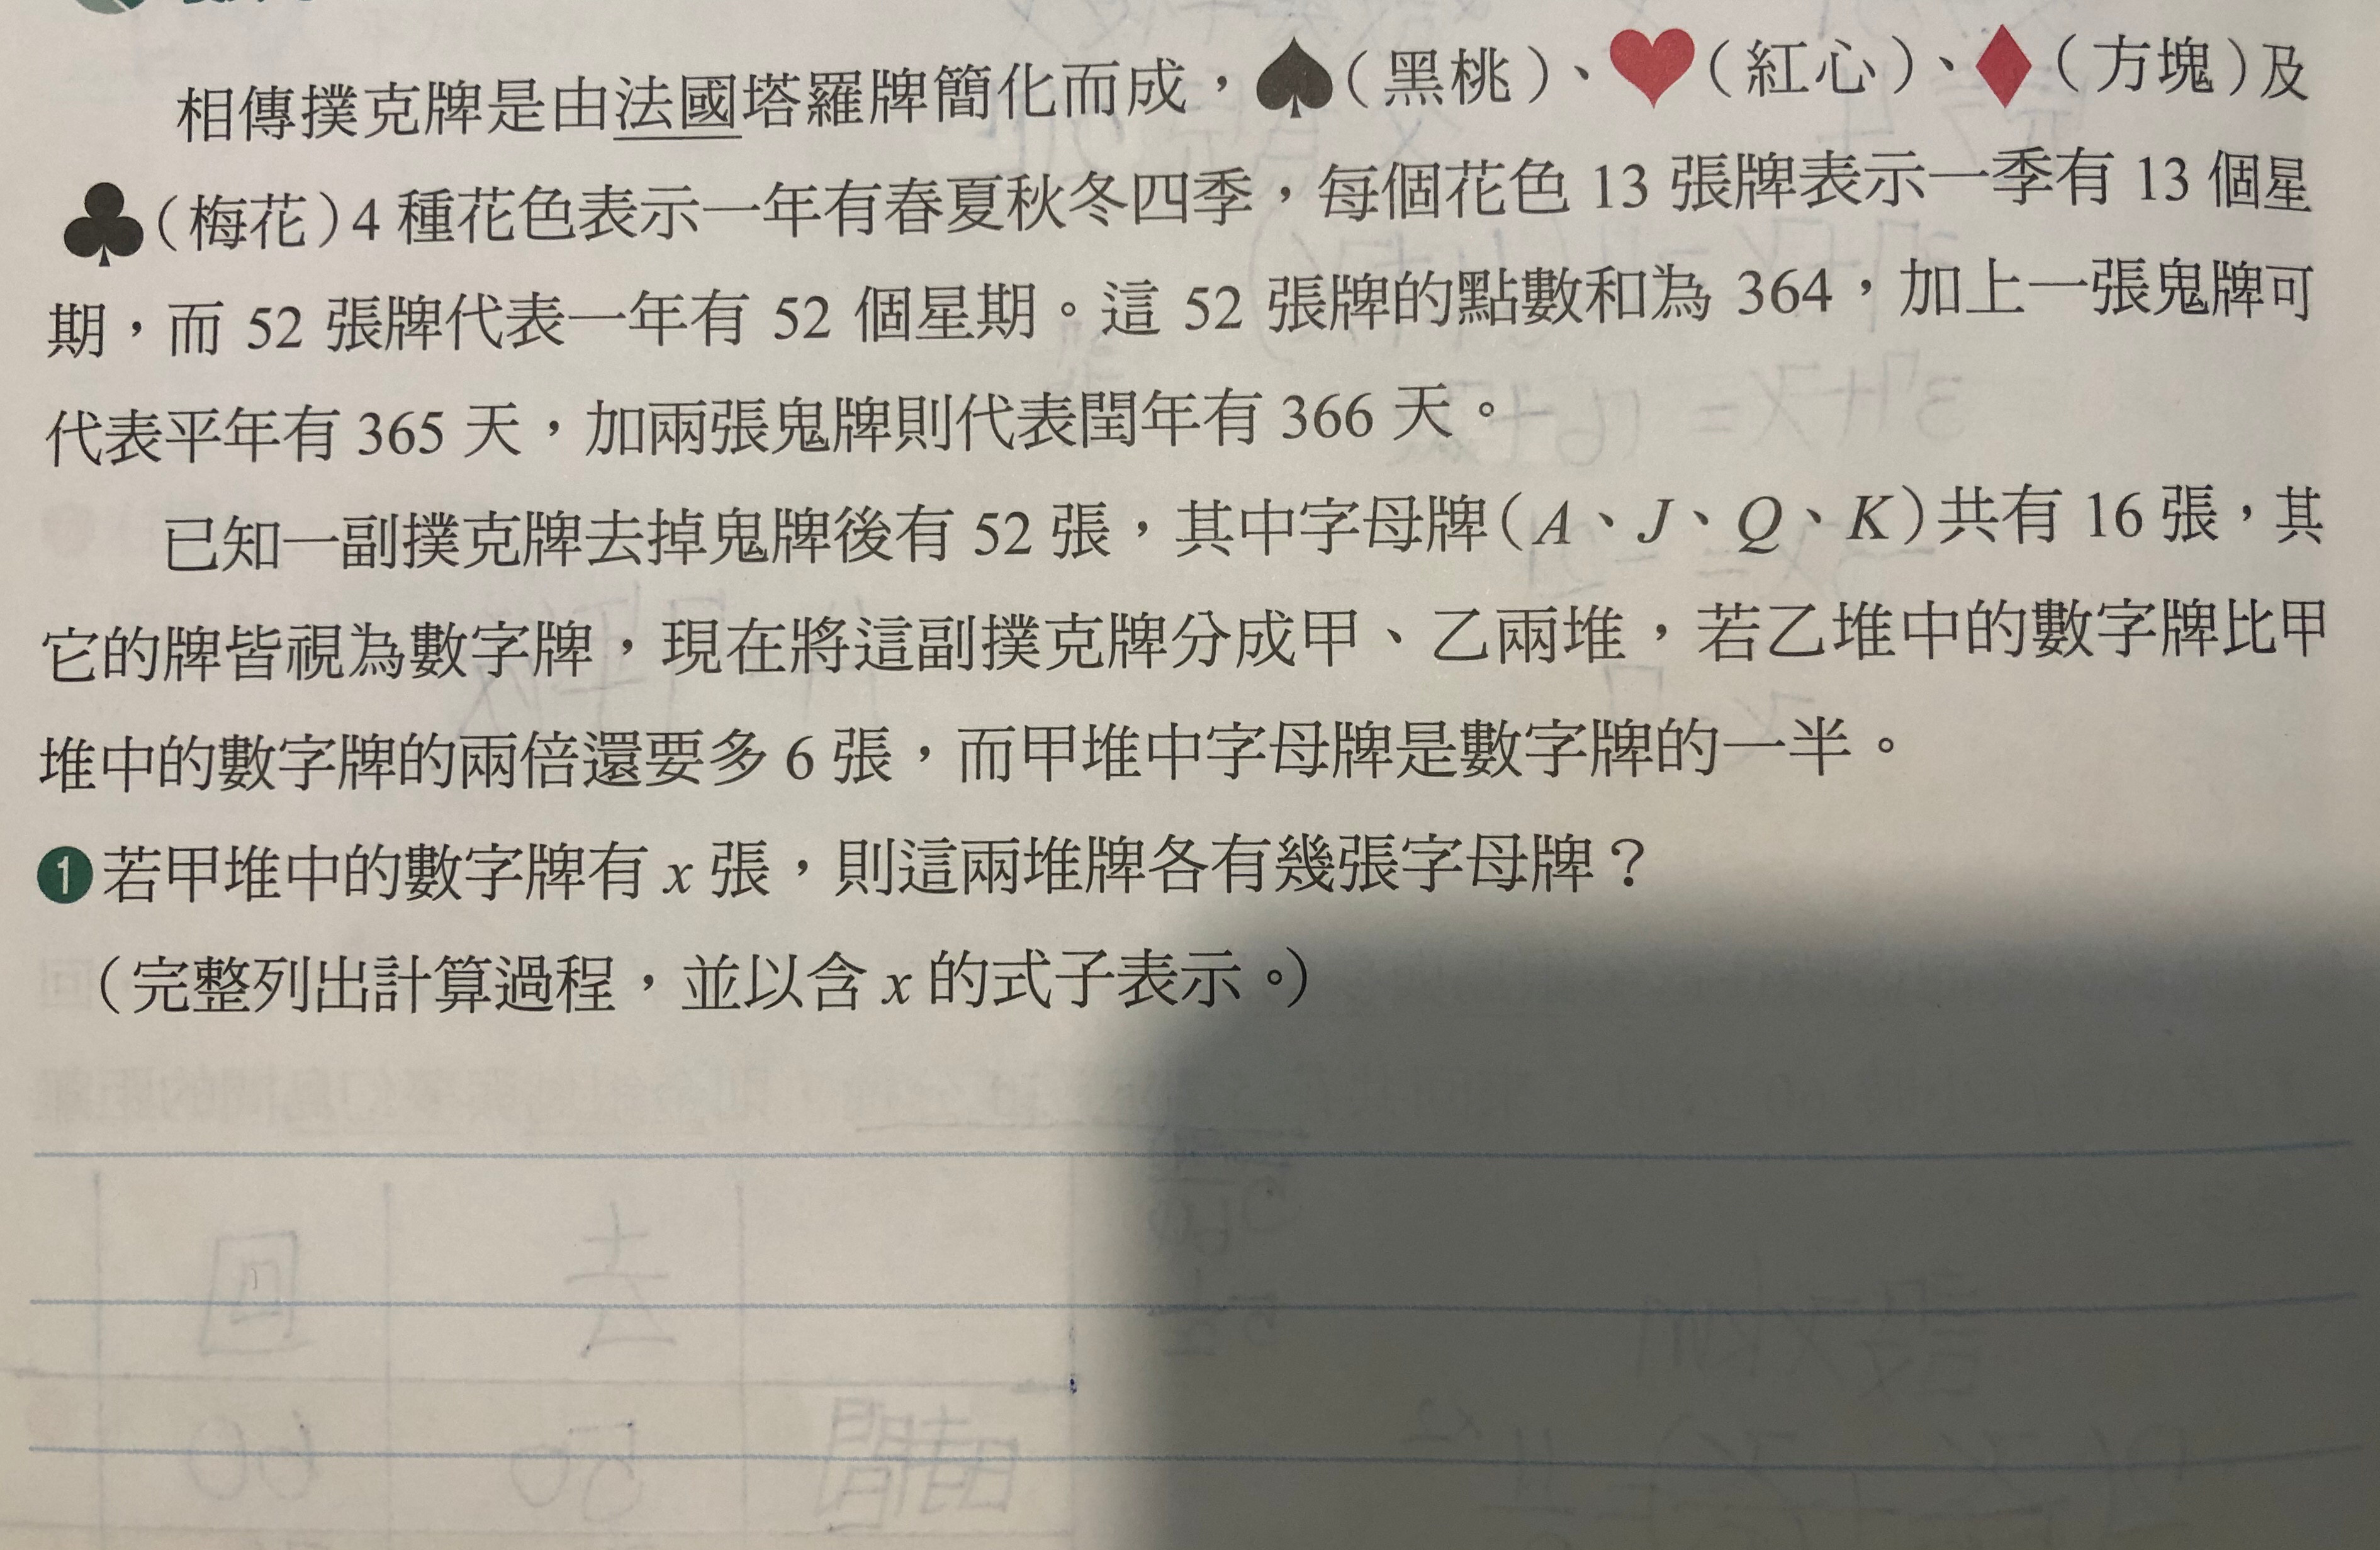 相傳撲克牌是由法國塔羅牌簡化而成，♠（黑桃）、♥（紅心）、♦（方塊）及
♣（梅花）4 種花色表示一年有春夏秋冬四季，每個花色 13 張牌表示一季有 13 個星
期，而 52 張牌代表一年有 52 個星期。這 52 張牌的點數和為 364，加上一張鬼牌可
代表平年有 365 天，加兩張鬼牌則代表閏年有 366 天。
已知一副撲克牌去掉鬼牌後有 52 張，其中字母牌（A、J、Q、K）共有 16 張，其
它的牌皆視為數字牌，現在將這副撲克牌分成甲、乙兩堆，若乙堆中的數字牌比甲
堆中的數字牌的兩倍還要多 6 張，而甲堆中字母牌是數字牌的一半。
1 若甲堆中的數字牌有 x 張，則這兩堆牌各有幾張字母牌？
（完整列出計算過程，並以含 x 的式子表示。）